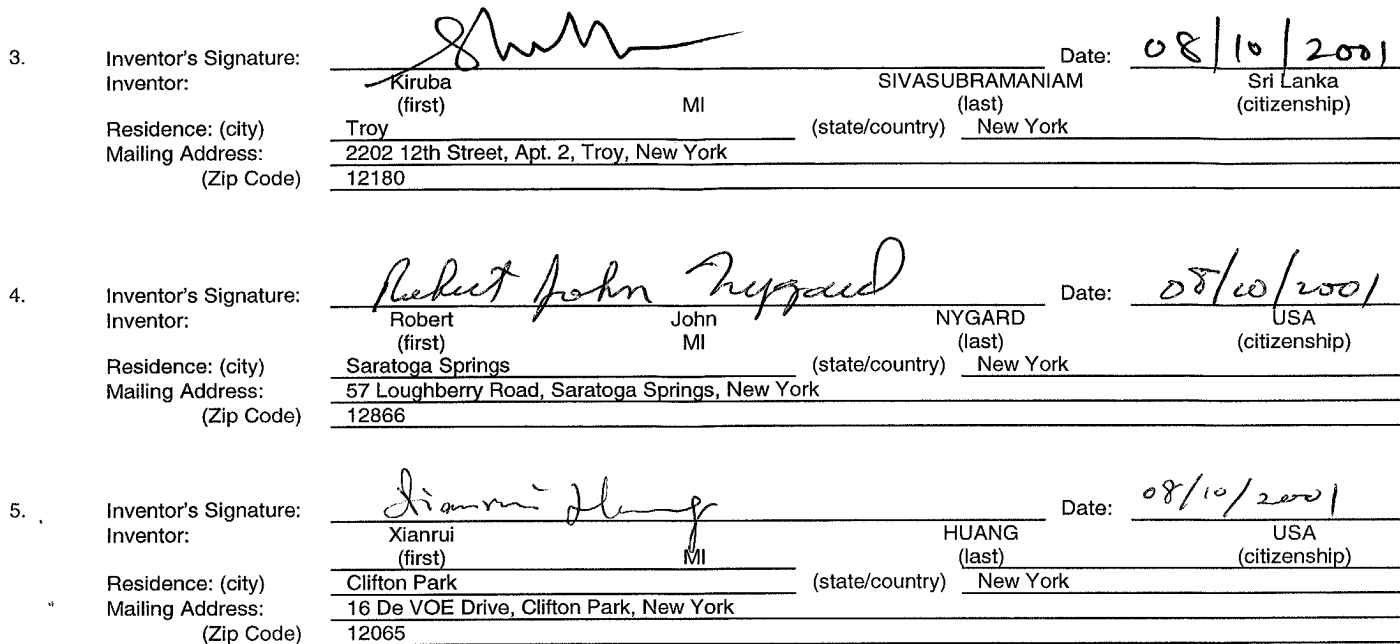 3. Inventor's Signature: Date: 08/10/2001
Inventor: Kiruba SIVASUBRAMANIAM Sri Lanka
(first) MI (last) (citizenship)
Residence: (city) Troy (state/country) New York
Mailing Address: 2202 12th Street, Apt. 2, Troy, New York
(Zip Code) 12180
4. Inventor's Signature: Robert John Nygard Date: 08/10/2001
Inventor: Robert John NYGARD USA
(first) MI (last) (citizenship)
Residence: (city) Saratoga Springs (state/country) New York
Mailing Address: 57 Loughberry Road, Saratoga Springs, New York
(Zip Code) 12866
5. Inventor's Signature: Xianrui Huang Date: 08/10/2001
Inventor: Xianrui HUANG USA
(first) MI (last) (citizenship)
Residence: (city) Clifton Park (state/country) New York
Mailing Address: 16 De VOE Drive, Clifton Park, New York
(Zip Code) 12065